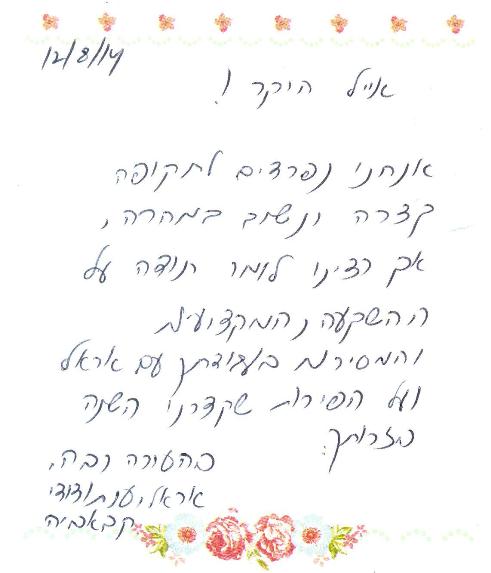 12/8/14
אייל היקר!
אנחנו נפרדים לתקופה
קצרה ונשוב במהרה,
אך רצינו לומר תודה על
ההשקעה, המקצועיות
והמסירות בעבודתך עם אראל
ועל הפירות שקצרנו השנה
בזכותך.
בהערכה רבה,
אראל, ענת ודודי